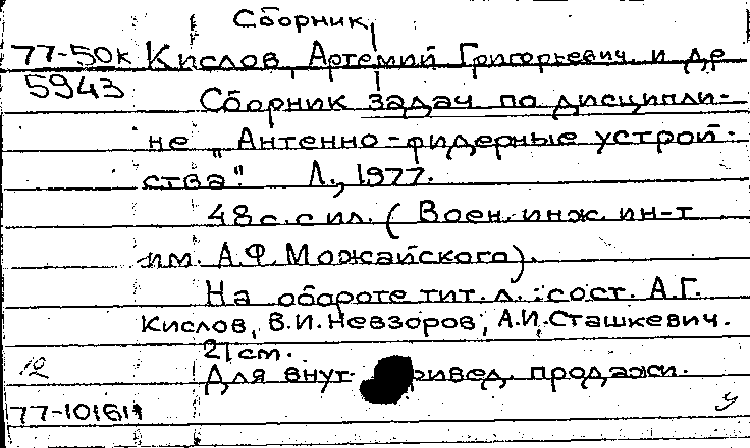 Сборник
77-50к Кислов, Артемий Григорьевич и др
5943
Сборник задач по дисципли-
не „Антенно-фидерные устрой-
ства". Л., 1977.
48 с. с ил. (Воен. инж. ин-т
им. А.Ф. Можайского).
На обороте тит. л.: сост. А.Г.
Кислов, В.И. Невзоров, А.И. Сташкевич.
21 см.
12 Для внут. продажи.
77-10161